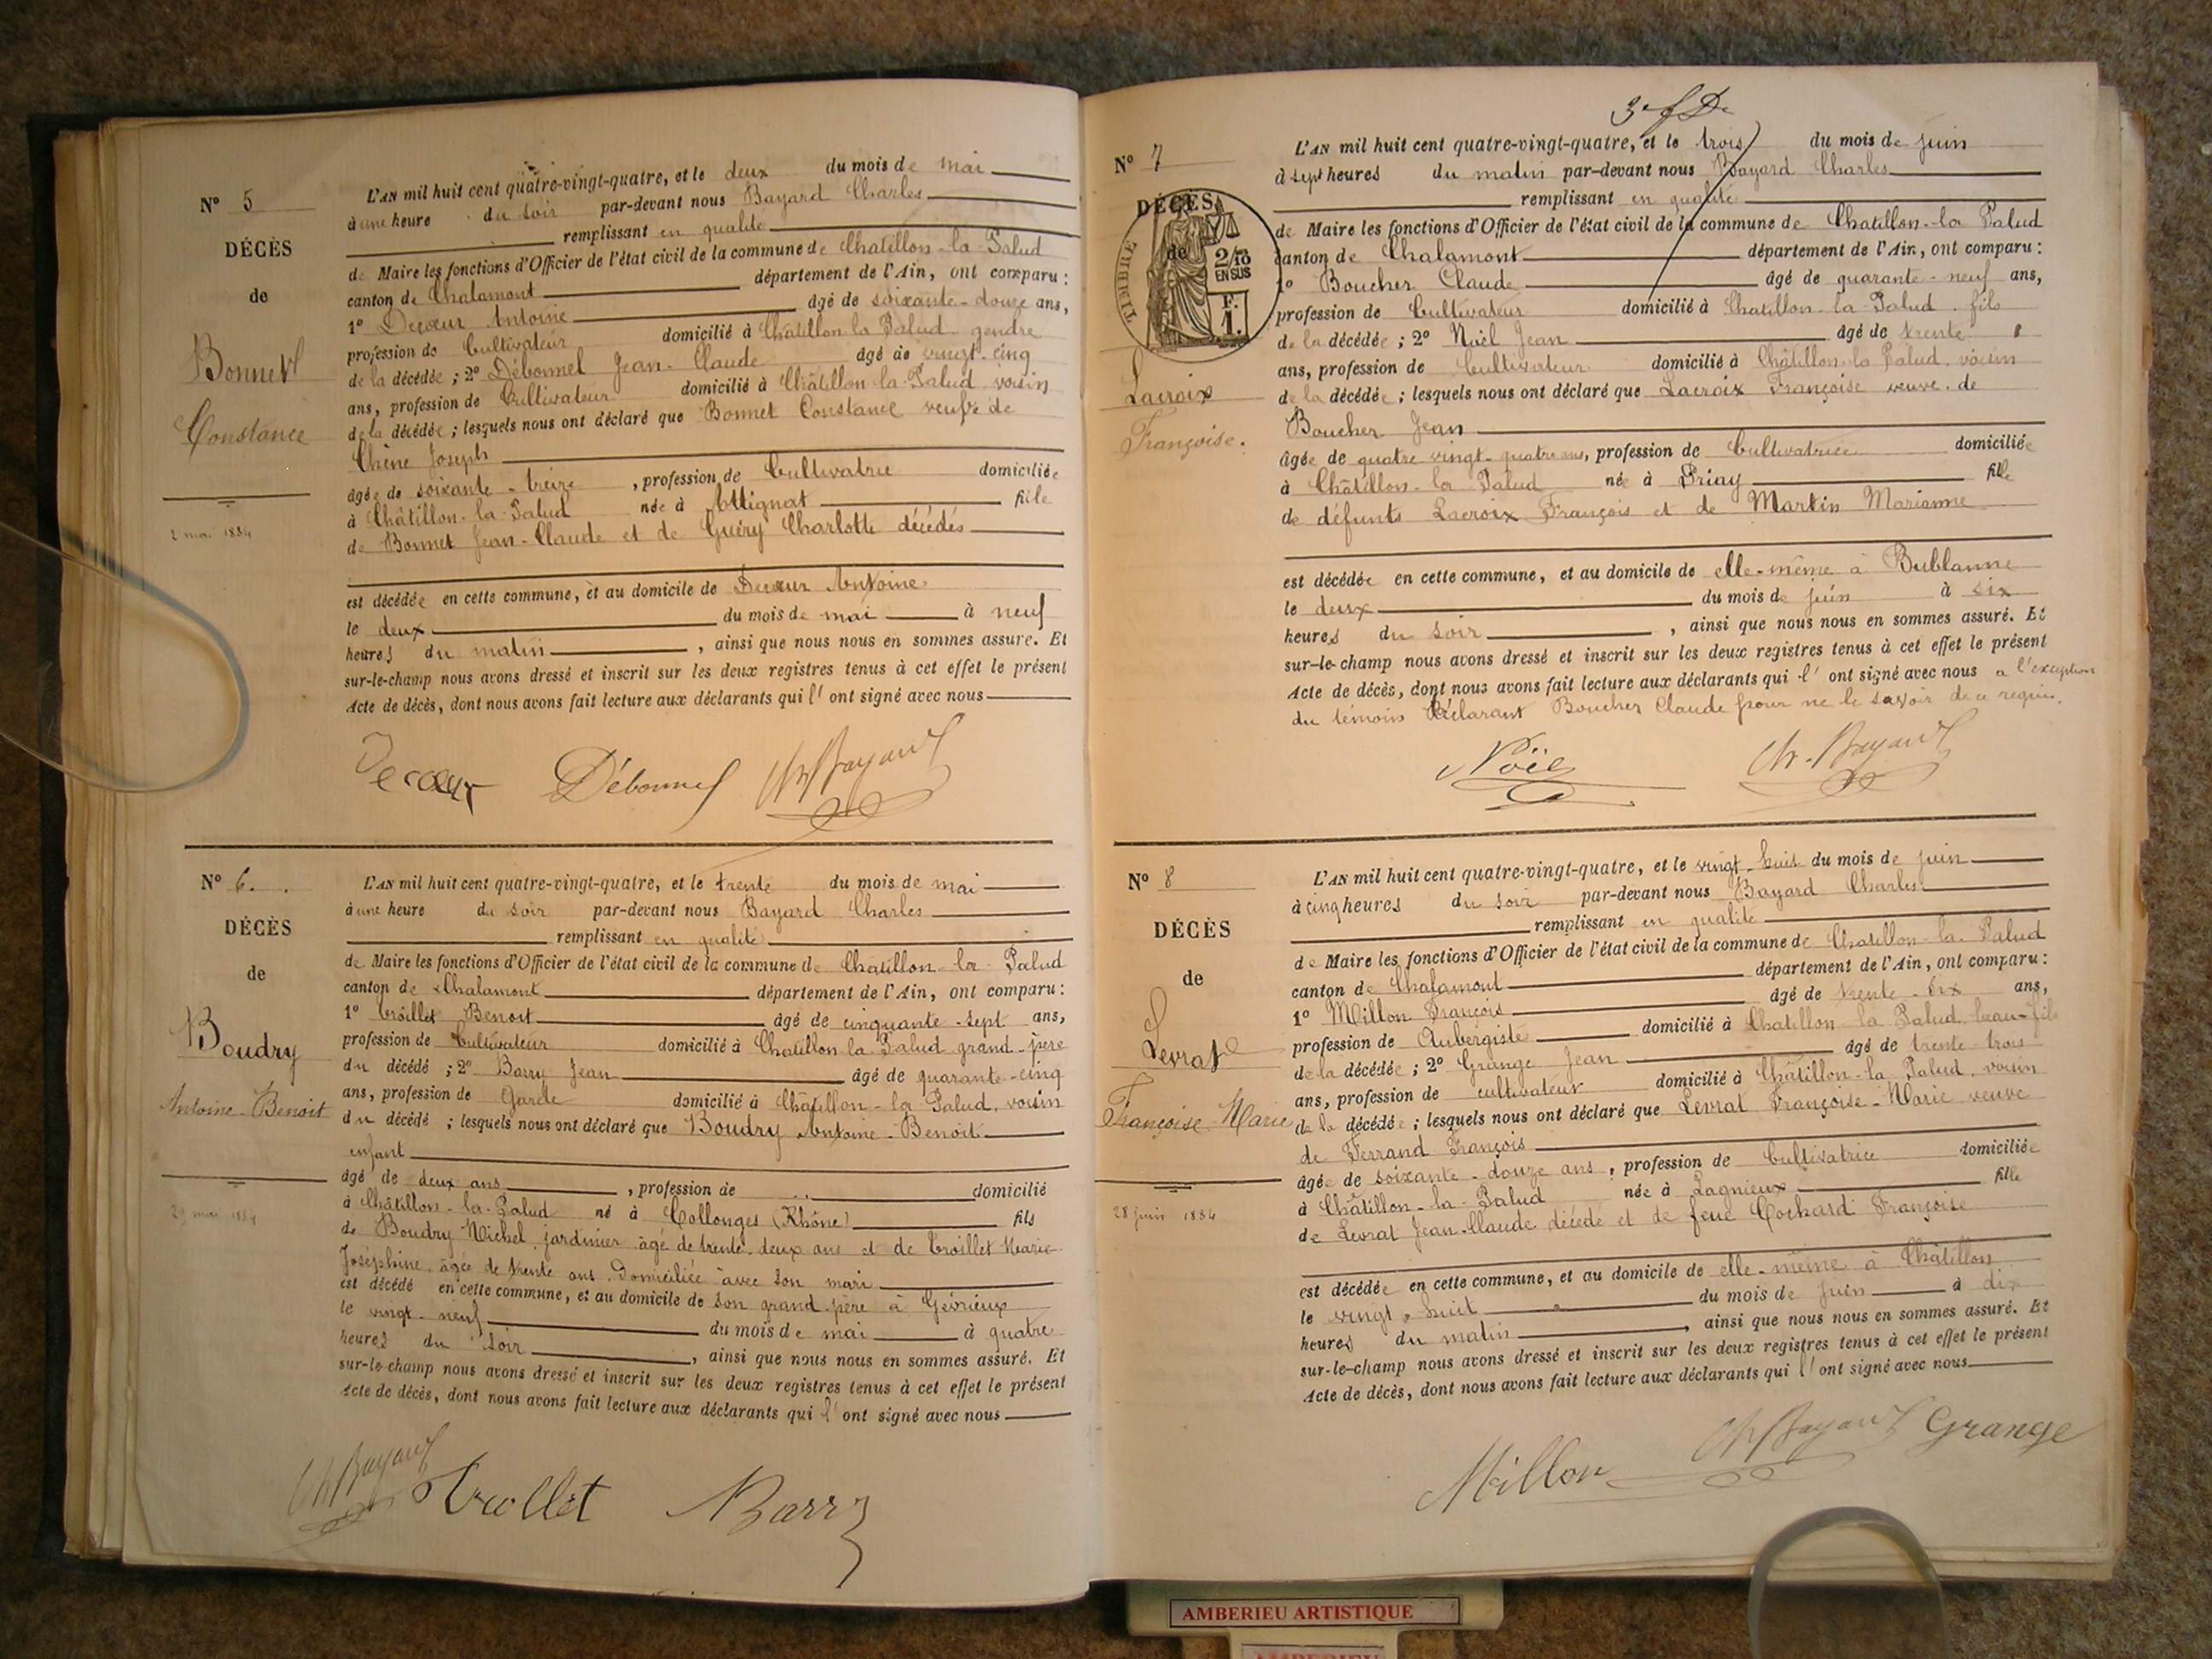 N° 5
DÉCÈS
de
Bonnet
Constance
2 mai 1884
L'AN mil huit cent quatre-vingt-quatre, et le deux du mois de mai
à une heure du soir par-devant nous Bayard Charles
remplissant en qualité
de Maire les fonctions d'Officier de l'état civil de la commune de Chatillon-la-Palud
canton de Chalamont département de l'Ain, ont comparu :
1° Decœur Antoine âgé de soixante-douze ans,
profession de Cultivateur domicilié à Châtillon la Palud gendre
de la décédée ; 2° Débonnel Jean-Claude âgé de vingt-cinq
ans, profession de Cultivateur domicilié à Châtillon-la-Palud voisin
de la décédée ; lesquels nous ont déclaré que Bonnet Constance veuve de
Chêne Joseph
âgée de soixante-treize, profession de Cultivatrice domiciliée
à Châtillon-la-Palud née à Attignat fille
de Bonnet Jean-Claude et de Guéry Charlotte décédés
est décédée en cette commune, et au domicile de Decœur Antoine
le deux du mois de mai à neuf
heures du matin, ainsi que nous nous en sommes assuré. Et
sur-le-champ nous avons dressé et inscrit sur les deux registres tenus à cet effet le présent
Acte de décès, dont nous avons fait lecture aux déclarants qui l'ont signé avec nous
Decœur Débonnel Ch. Bayard
N° 6.
DÉCÈS
de
Boudry
Antoine-Benoit
29 mai 1884
L'AN mil huit cent quatre-vingt-quatre, et le trente du mois de mai
à une heure du soir par-devant nous Bayard Charles
remplissant en qualité
de Maire les fonctions d'Officier de l'état civil de la commune de Chatillon-la-Palud
canton de Chalamont département de l'Ain, ont comparu :
1° Troillet Benoit âgé de cinquante-sept ans,
profession de Cultivateur domicilié à Chatillon la Palud grand-père
du décédé ; 2° Barry Jean âgé de quarante-cinq
ans, profession de Garde domicilié à Châtillon-la-Palud, voisin
du décédé ; lesquels nous ont déclaré que Boudry Antoine-Benoit
enfant
âgé de deux ans, profession de .. domicilié
à Châtillon-la-Palud né à Collonges (Rhône) fils
de Boudry Michel jardinier âgé de trente-deux ans et de Troillet Marie-
Joséphine, âgée de trente ans. Domiciliée avec son mari
est décédé en cette commune, et au domicile de son grand-père à Gévrieux
le vingt-neuf du mois de mai à quatre
heures du soir, ainsi que nous nous en sommes assuré. Et
sur-le-champ nous avons dressé et inscrit sur les deux registres tenus à cet effet le présent
Acte de décès, dont nous avons fait lecture aux déclarants qui l'ont signé avec nous
Ch. Bayard Trollet Barry
N° 7
DÉCÈS
de
TIMBRE
2/10
EN SUS
F.
1.
Lacroix
Françoise.
L'AN mil huit cent quatre-vingt-quatre, et le trois du mois de juin
à sept heures du matin par-devant nous Bayard Charles
remplissant en qualité
de Maire les fonctions d'Officier de l'état civil de la commune de Chatillon-la Palud
canton de Chalamont département de l'Ain, ont comparu :
1° Boucher Claude âgé de quarante-neuf ans,
profession de Cultivateur domicilié à Chatillon-la-Palud. fils
de la décédée ; 2° Noël Jean âgé de trente
ans, profession de Cultivateur domicilié à Châtillon-la Palud, voisin
de la décédée ; lesquels nous ont déclaré que Lacroix Françoise veuve de
Boucher Jean
âgée de quatre vingt-quatre ans, profession de Cultivatrice domiciliée
à Châtillon-la Palud née à Priay fille
de défunts Lacroix François et de Martin Marianne
est décédée en cette commune, et au domicile de elle-même à Bublanne
le deux du mois de juin à six
heures du soir, ainsi que nous nous en sommes assuré. Et
sur-le-champ nous avons dressé et inscrit sur les deux registres tenus à cet effet le présent
Acte de décès, dont nous avons fait lecture aux déclarants qui l'ont signé avec nous a l'exception
du témoins Déclarant Boucher Claude pour ne le savoir de ce requis.
Noël Ch. Bayard
N° 8
DÉCÈS
de
Levrat
Françoise-Marie
28 juin 1884
L'AN mil huit cent quatre-vingt-quatre, et le vingt-huit du mois de juin
à cinq heures du soir par-devant nous Bayard Charles
remplissant en qualité
de Maire les fonctions d'Officier de l'état civil de la commune de Chatillon-la-Palud
canton de Chalamont département de l'Ain, ont comparu :
1° Millon François âgé de trente-six ans,
profession de Aubergiste domicilié à Chatillon la Palud, beau-fils
de la décédée ; 2° Grange Jean âgé de trente-trois
ans, profession de cultivateur domicilié à Châtillon-la Palud, voisin
de la décédée ; lesquels nous ont déclaré que Levrat Françoise-Marie veuve
de Ferrand François
âgée de soixante-douze ans, profession de Cultivatrice domiciliée
à Châtillon-la-Palud née à Lagnieux fille
de Levrat Jean-Claude décédé et de feue Cochard Françoise
est décédée en cette commune, et au domicile de elle-même à Châtillon
le vingt-huit du mois de juin à dix
heures du matin, ainsi que nous nous en sommes assuré. Et
sur-le-champ nous avons dressé et inscrit sur les deux registres tenus à cet effet le présent
Acte de décès, dont nous avons fait lecture aux déclarants qui l'ont signé avec nous
Millon Ch. Bayard Grange
AMBERIEU ARTISTIQUE
AMBERIEU